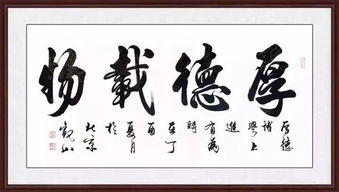 厚德載物
厚德
博學上
進
有為
時
在丁
酉
夏月
於
北京